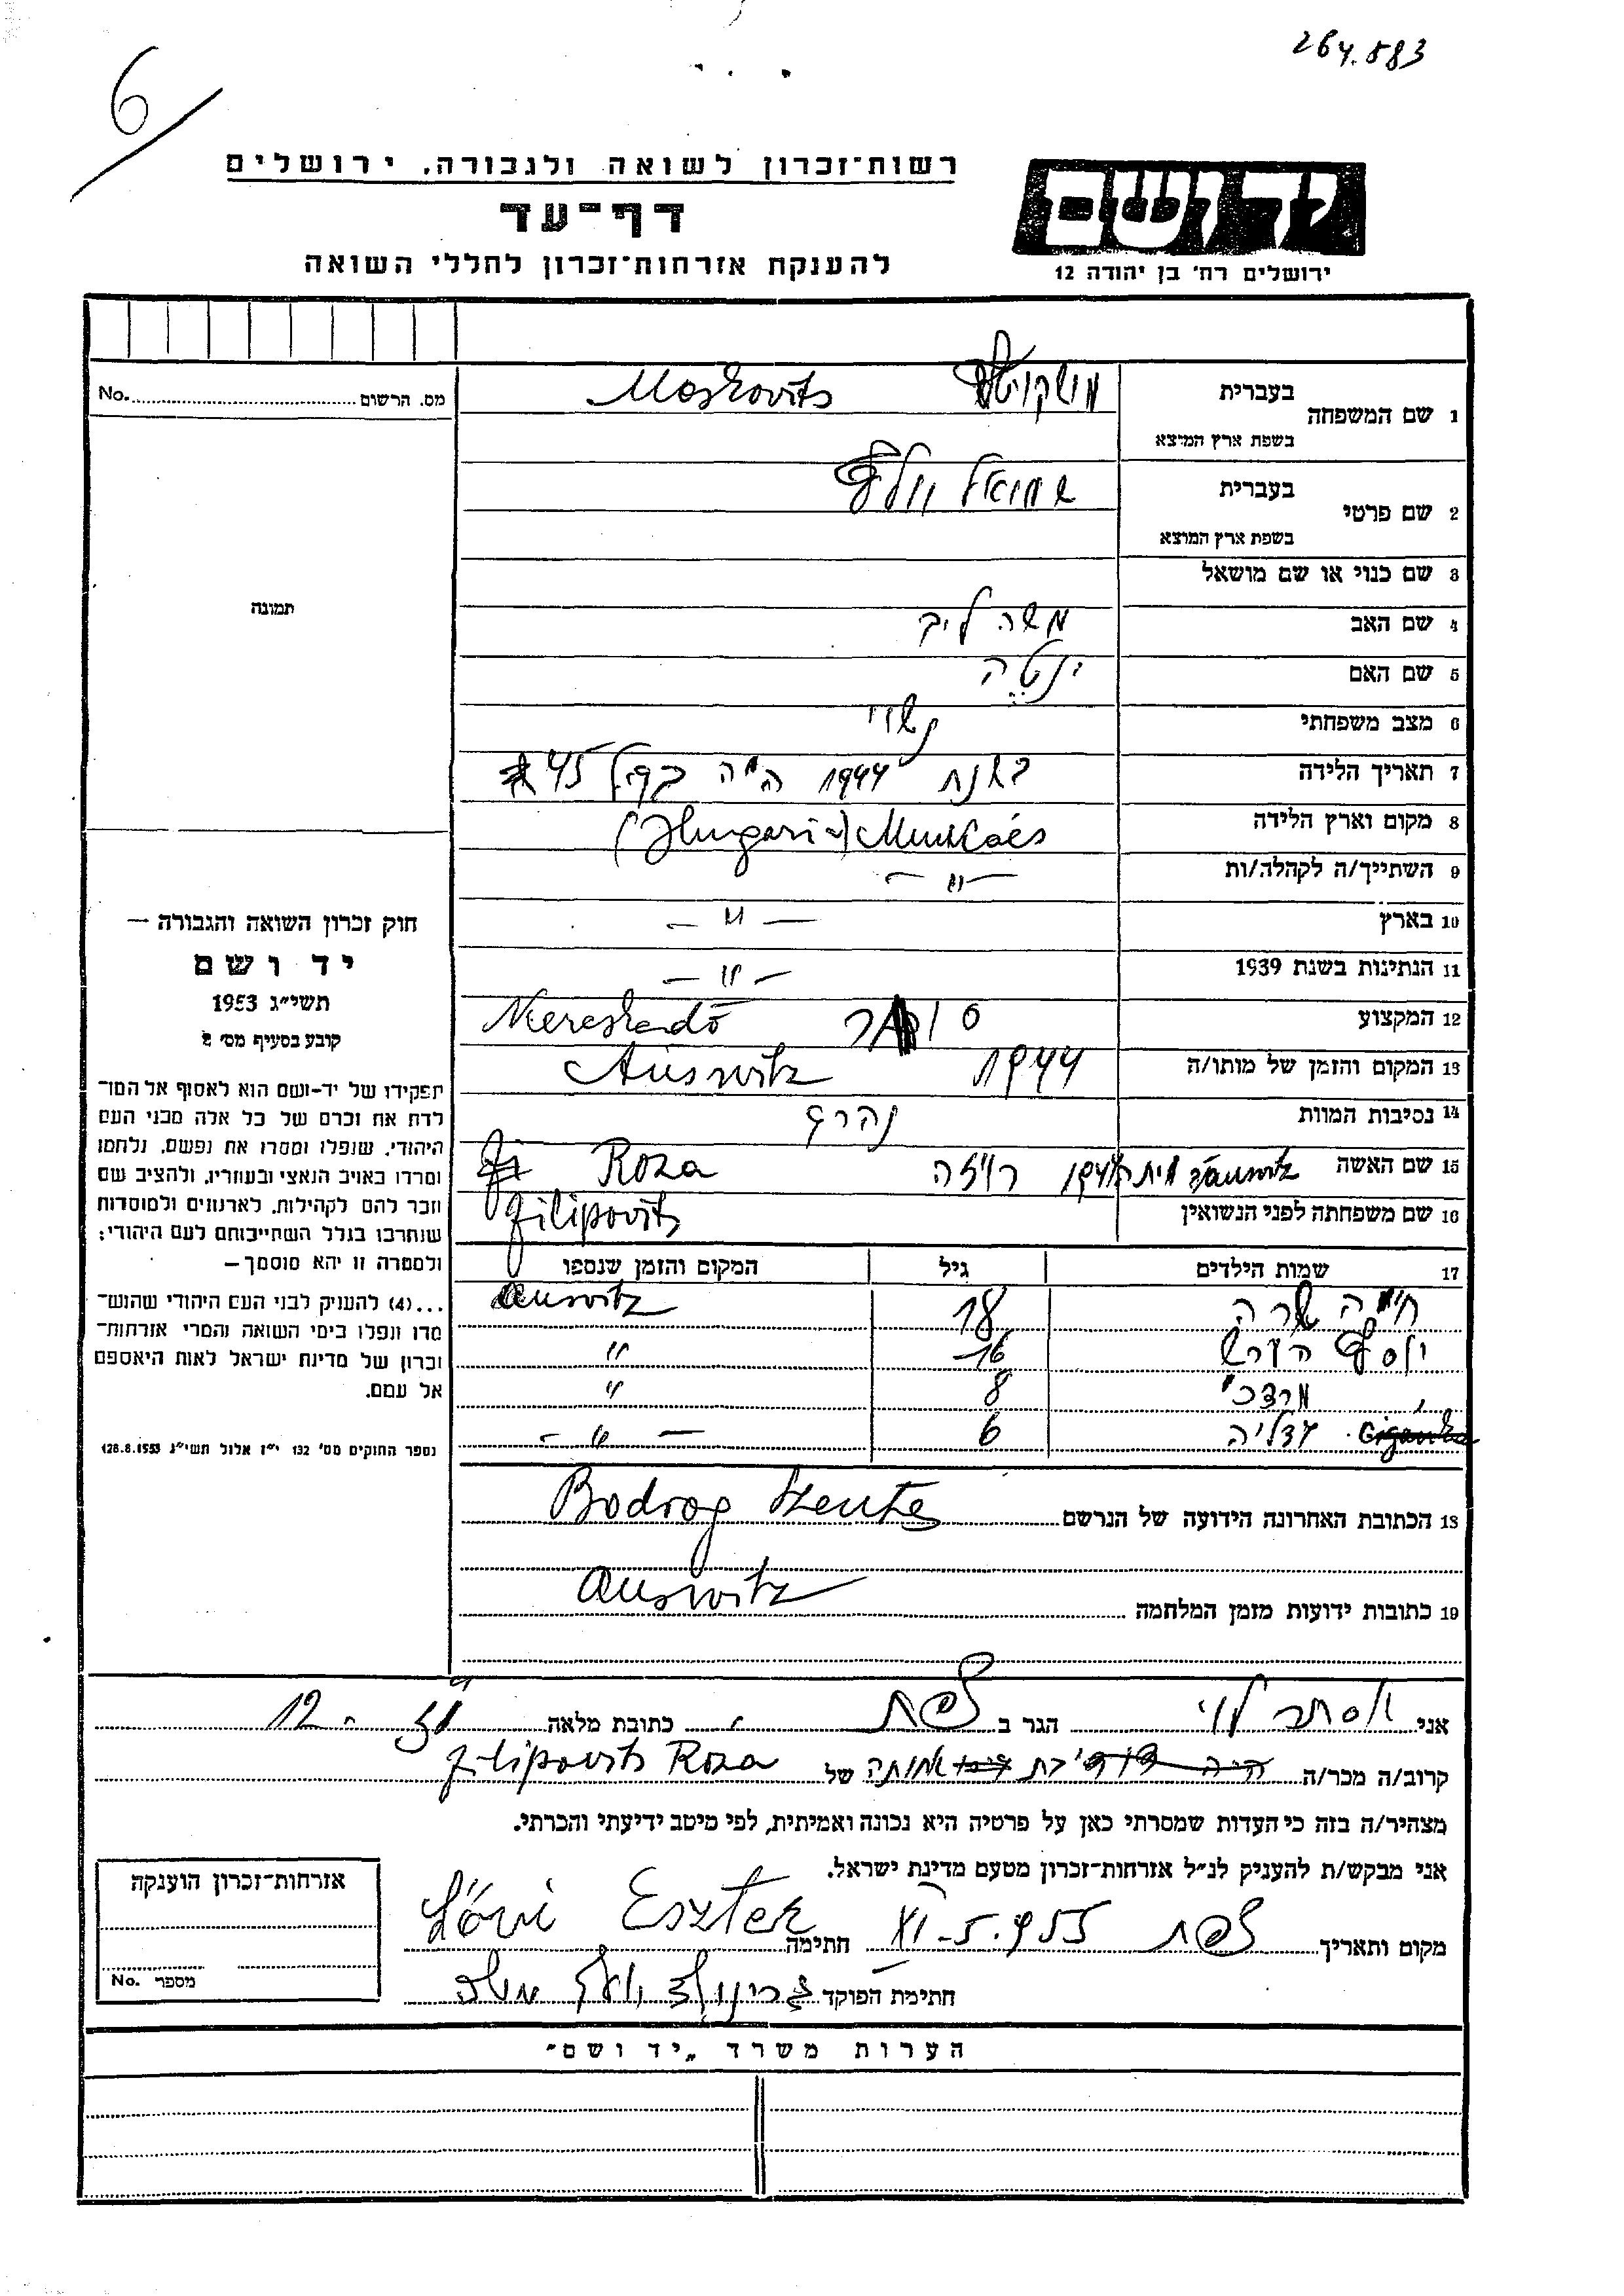 264.583
6
רשות־זכרון לשואה ולגבורה, ירושלים
דף־עד
להענקת אזרחות־זכרון לחללי השואה
יד ושם
ירושלים רח' בן יהודה 12
מס. הרשום No.
תמונה
1 שם המשפחה בעברית מושקוביץ Moskovits
בשפת ארץ המוצא
2 שם פרטי בעברית שמואל וולף
בשפת ארץ המוצא
3 שם כנוי או שם מושאל
4 שם האב משה ליב
5 שם האם ינטה
6 מצב משפחתי נשוי
7 תאריך הלידה בשנת 1944 היה בגיל 45
8 מקום וארץ הלידה Munkács (Hungaria)
9 השתייך/ה לקהלה/ות —״—
10 בארץ —״—
11 הנתינות בשנת 1939 —״—
12 המקצוע סוחר Kereskedő
13 המקום והזמן של מותו/ה 1944 Auswitz
14 נסיבות המוות נהרג
15 שם האשה Auswitz 1944 רוזה Roza
16 שם משפחתה לפני הנשואין Filipovits
17 שמות הילדים גיל המקום והזמן שנספו
חיה שרה 18 Auswitz
יוסף הירש 16 ״
מרדכי 8 ״
גדליה 6 —״—
18 הכתובת האחרונה הידועה של הנרשם Bodrog Szentes
19 כתובות ידועות מזמן המלחמה Auswitz
חוק זכרון השואה והגבורה —
יד ושם
תשי״ג 1953
קובע בסעיף מס' 2
תפקידו של יד־ושם הוא לאסוף אל המו־
לדת את זכרם של כל אלה מבני העם
היהודי, שנפלו ומסרו את נפשם, נלחמו
ומרדו באויב הנאצי ובעוזריו, ולהציב שם
וזכר להם לקהילות, לארגונים ולמוסדות
שנחרבו בגלל השתייכותם לעם היהודי;
ולמטרה זו יהא מוסמך —
...(4) להעניק לבני העם היהודי שהוש־
מדו ונפלו בימי השואה והמרי אזרחות־
זכרון של מדינת ישראל לאות היאספם
אל עמם.
(ספר החוקים מס' 132 י״ז אלול תשי״ג 28.8.1953)
אני אסתר לוי הגר ב צפת כתובת מלאה 12 -
קרוב/ה מכר/ה אחותה של Filipovits Roza
מצהיר/ה בזה כי העדות שמסרתי כאן על פרטיה היא נכונה ואמיתית, לפי מיטב ידיעתי והכרתי.
אני מבקש/ת להעניק לנ״ל אזרחות־זכרון מטעם מדינת ישראל.
מקום ותאריך צפת XI-5.955 חתימה Lővi Eszter
חתימת הפוקד
אזרחות־זכרון הוענקה
מספר No.
הערות משרד „יד ושם״